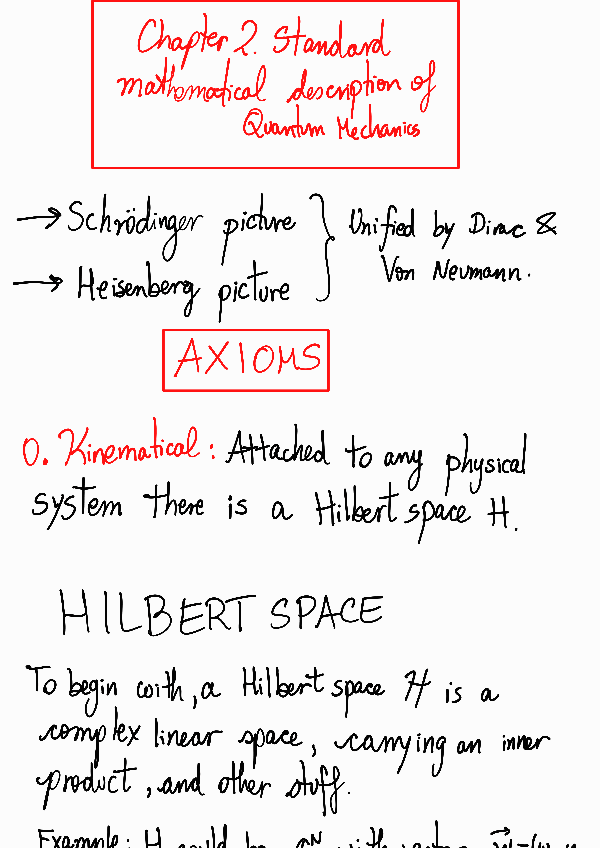 Chapter 2. Standard
mathematical description of
Quantum Mechanics
→ Schrödinger picture } Unified by Dirac &
→ Heisenberg picture Von Neumann.
AXIOMS
0. Kinematical: Attached to any physical
system there is a Hilbert space H.
HILBERT SPACE
To begin with, a Hilbert space H is a
complex linear space, carrying an inner
product, and other stuff.
Example: H could be ℂᴺ with vectors